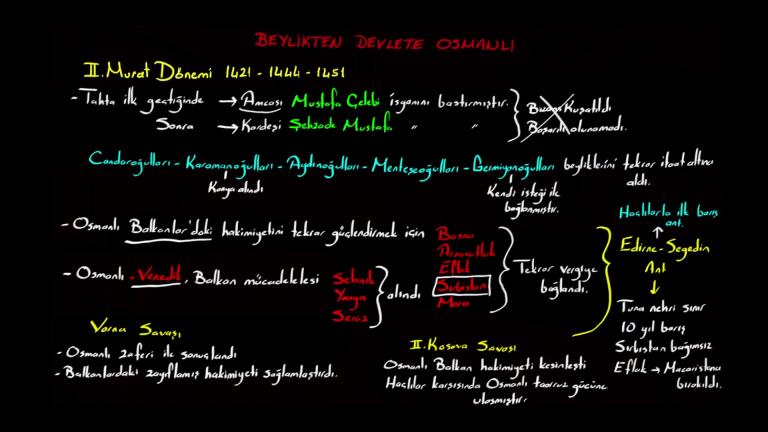 BEYLİKTEN DEVLETE OSMANLI
II. Murat Dönemi 1421 - 1444 - 1451
- Tahta ilk geçtiğinde → Amcası Mustafa Çelebi isyanını bastırmıştır.
Sonra → Kardeşi Şehzade Mustafa " "
Kuşatıldı
Başarılı olunamadı.
Candaroğulları - Karamanoğulları - Aydınoğulları - Menteşeoğulları - Germiyanoğulları beyliklerini tekrar itaat altına aldı.
Konya alındı
Kendi isteği ile
bağlanmıştır.
- Osmanlı Balkanlar'daki hakimiyetini tekrar güçlendirmek için
Bosna
Arnavutluk
Eflak
Sırbistan
Mora
Tekrar vergiye
bağlandı.
- Osmanlı - Venedik, Balkan mücadelesi
Selanik
Yanya
Serez
alındı
Haçlılarla ilk barış
ant.
↑
Edirne - Segedin
Ant
↓
Tuna nehri sınır
10 yıl barış
Sırbistan bağımsız
Eflak → Macaristana
bırakıldı.
Varna Savaşı
- Osmanlı zaferi ile sonuçlandı
- Balkanlardaki zayıflamış hakimiyeti sağlamlaştırdı.
II. Kosova Savaşı
Osmanlı Balkan hakimiyeti kesinleşti
Haçlılar karşısında Osmanlı taarruz gücüne
ulaşmıştır.